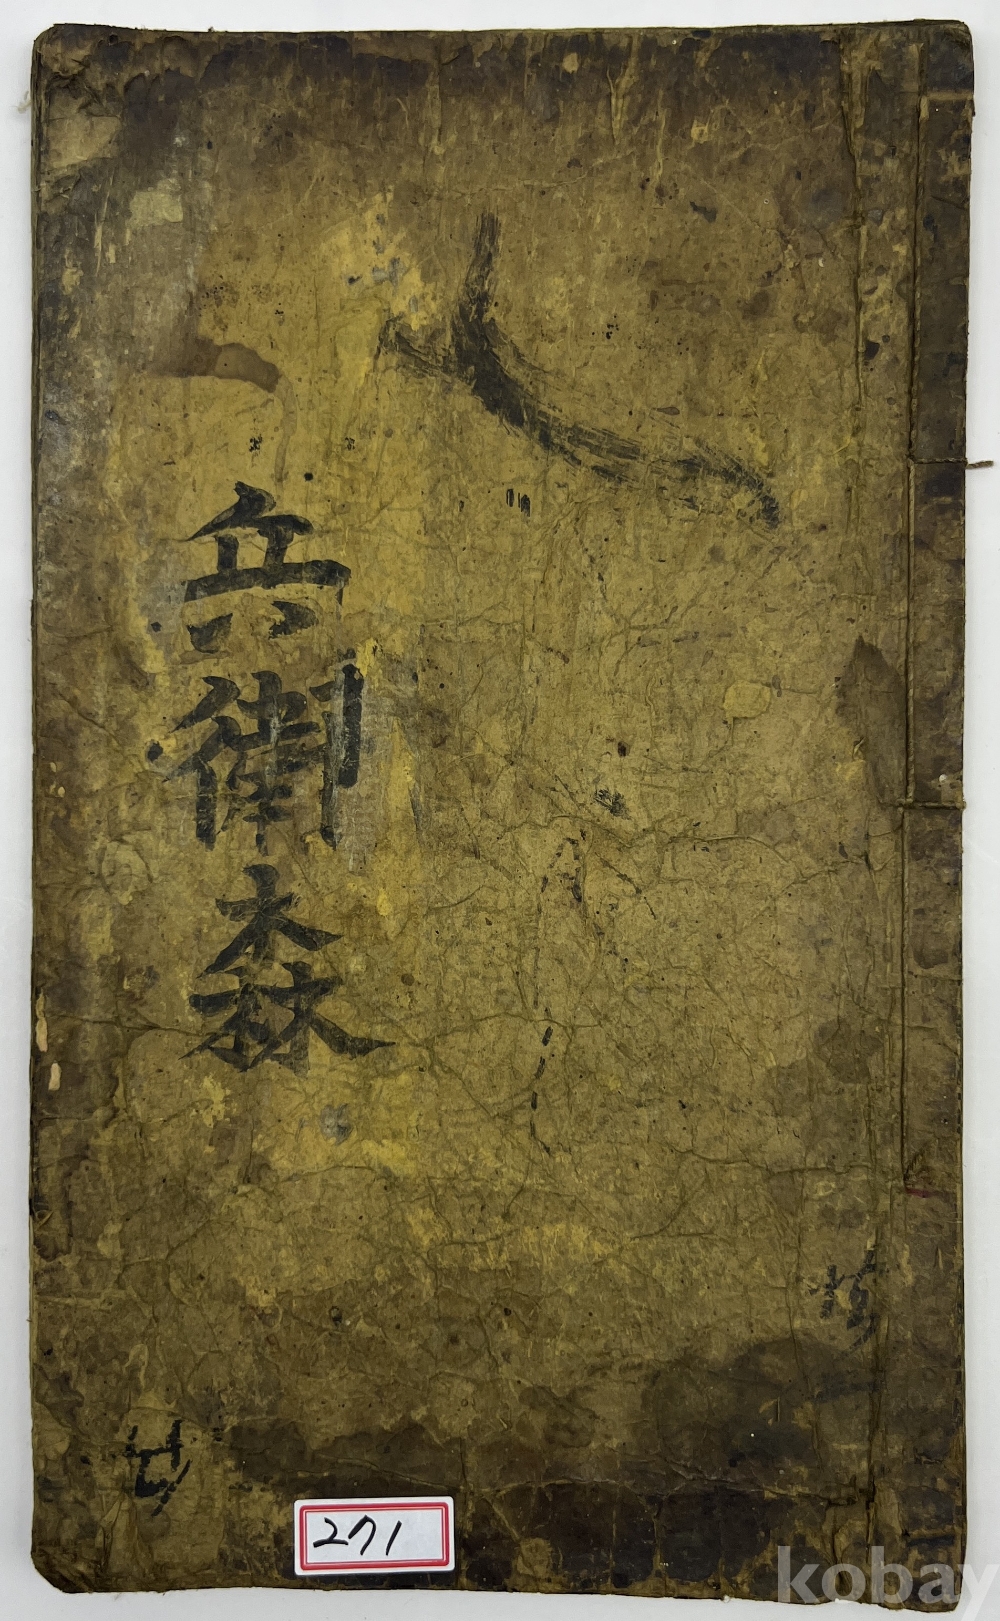 兵衛森
271
kobay